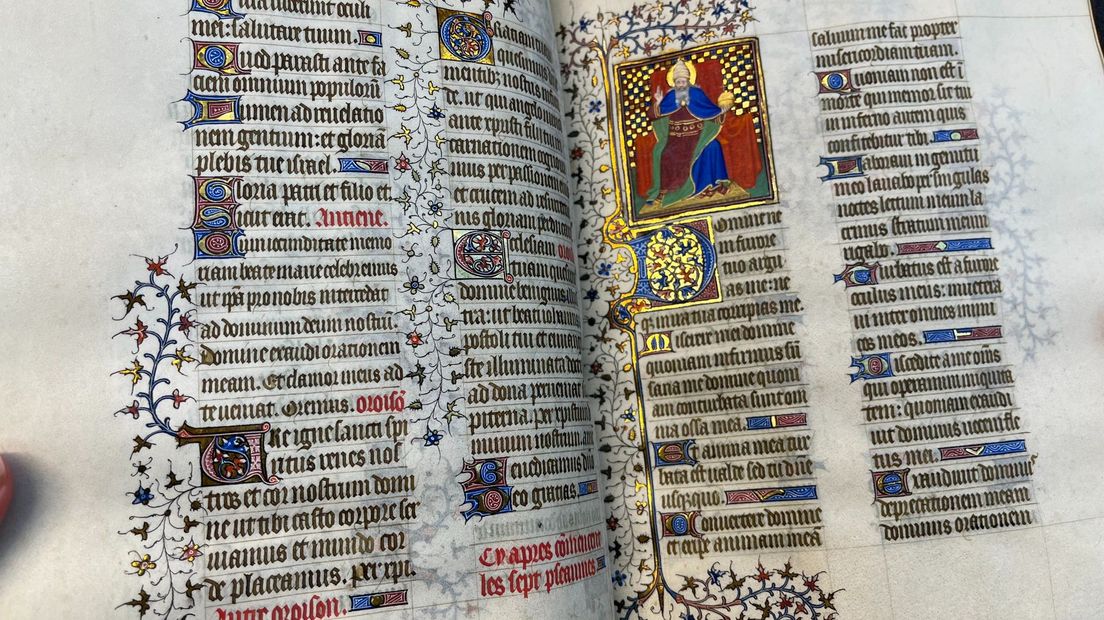 uia uiderunt oculi
mei: salutare tuum.
Quod parasti ante fa
ciem omnium populorū
Lumen ad reuelatio
nem gentium: et gloriā
plebis tue israel.
Gloria patri et filio et
Sicut erat. Antiene.
Cum iocunditate memo
riam beate marie celebremus
ut ip̄a pro nobis intercedat
ad dominum deum nostrū.
Domine exaudi orationem
meam. Et clamor meus ad
te ueniat. Oremus. oroisō
Ure igne sancti spi
ritus renes nos
tros et cor nostrum domi
ne ut tibi casto corpore ser
uiamus et mundo cor
de placeamus. Per xp̄i
Autre oroison.
Gratiam tuam
quesumus
mentib; nostris infun
de. ut qui angelo
ante xpristi filii tui
carnationem cognoui
mus per passionem
et crucem ad resurre
nis gloriam
Ecclesiam oroi
tuam quesu
domine benignus illus
tra: ut beati iohannis
postoli tui et euuan
ste illuminata
ad dona perueniat
piterna. Per xpristum
minum nostrum. am
Benedicamus dn̄o
Deo gratias.
Cy apres cōmencent
les sept pseaumes
Domine ne
in furore
tuo argu
as me: ne
q; in ira tua corripias me.
Miserere mei domine
quoniam infirmus sū
sana me domine quoni
am conturbata sunt om
nia ossa mea.
Et anima mea tur
bata est ualde sed tu dne
usq;quo.
Conuertere domine
et eripe animam meā
saluum me fac propter
misericordiam tuam.
Quoniam non est ī
morte qui memor sit tui
in inferno autem quis
confitebitur tibi.
Laboraui in gemitu
meo lauabo per singulas
noctes lectum meum la
crimis stratum meum
rigabo.
Turbatus est a furore
oculus meus: inueteraui
inter omnes inimi
cos meos.
Discedite a me om̄s
qui operamini iniquita
tem: quoniam exaudi
uit dominus uocem fle
tus mei.
Exaudiuit dominus
deprecationem meam
dominus orationem